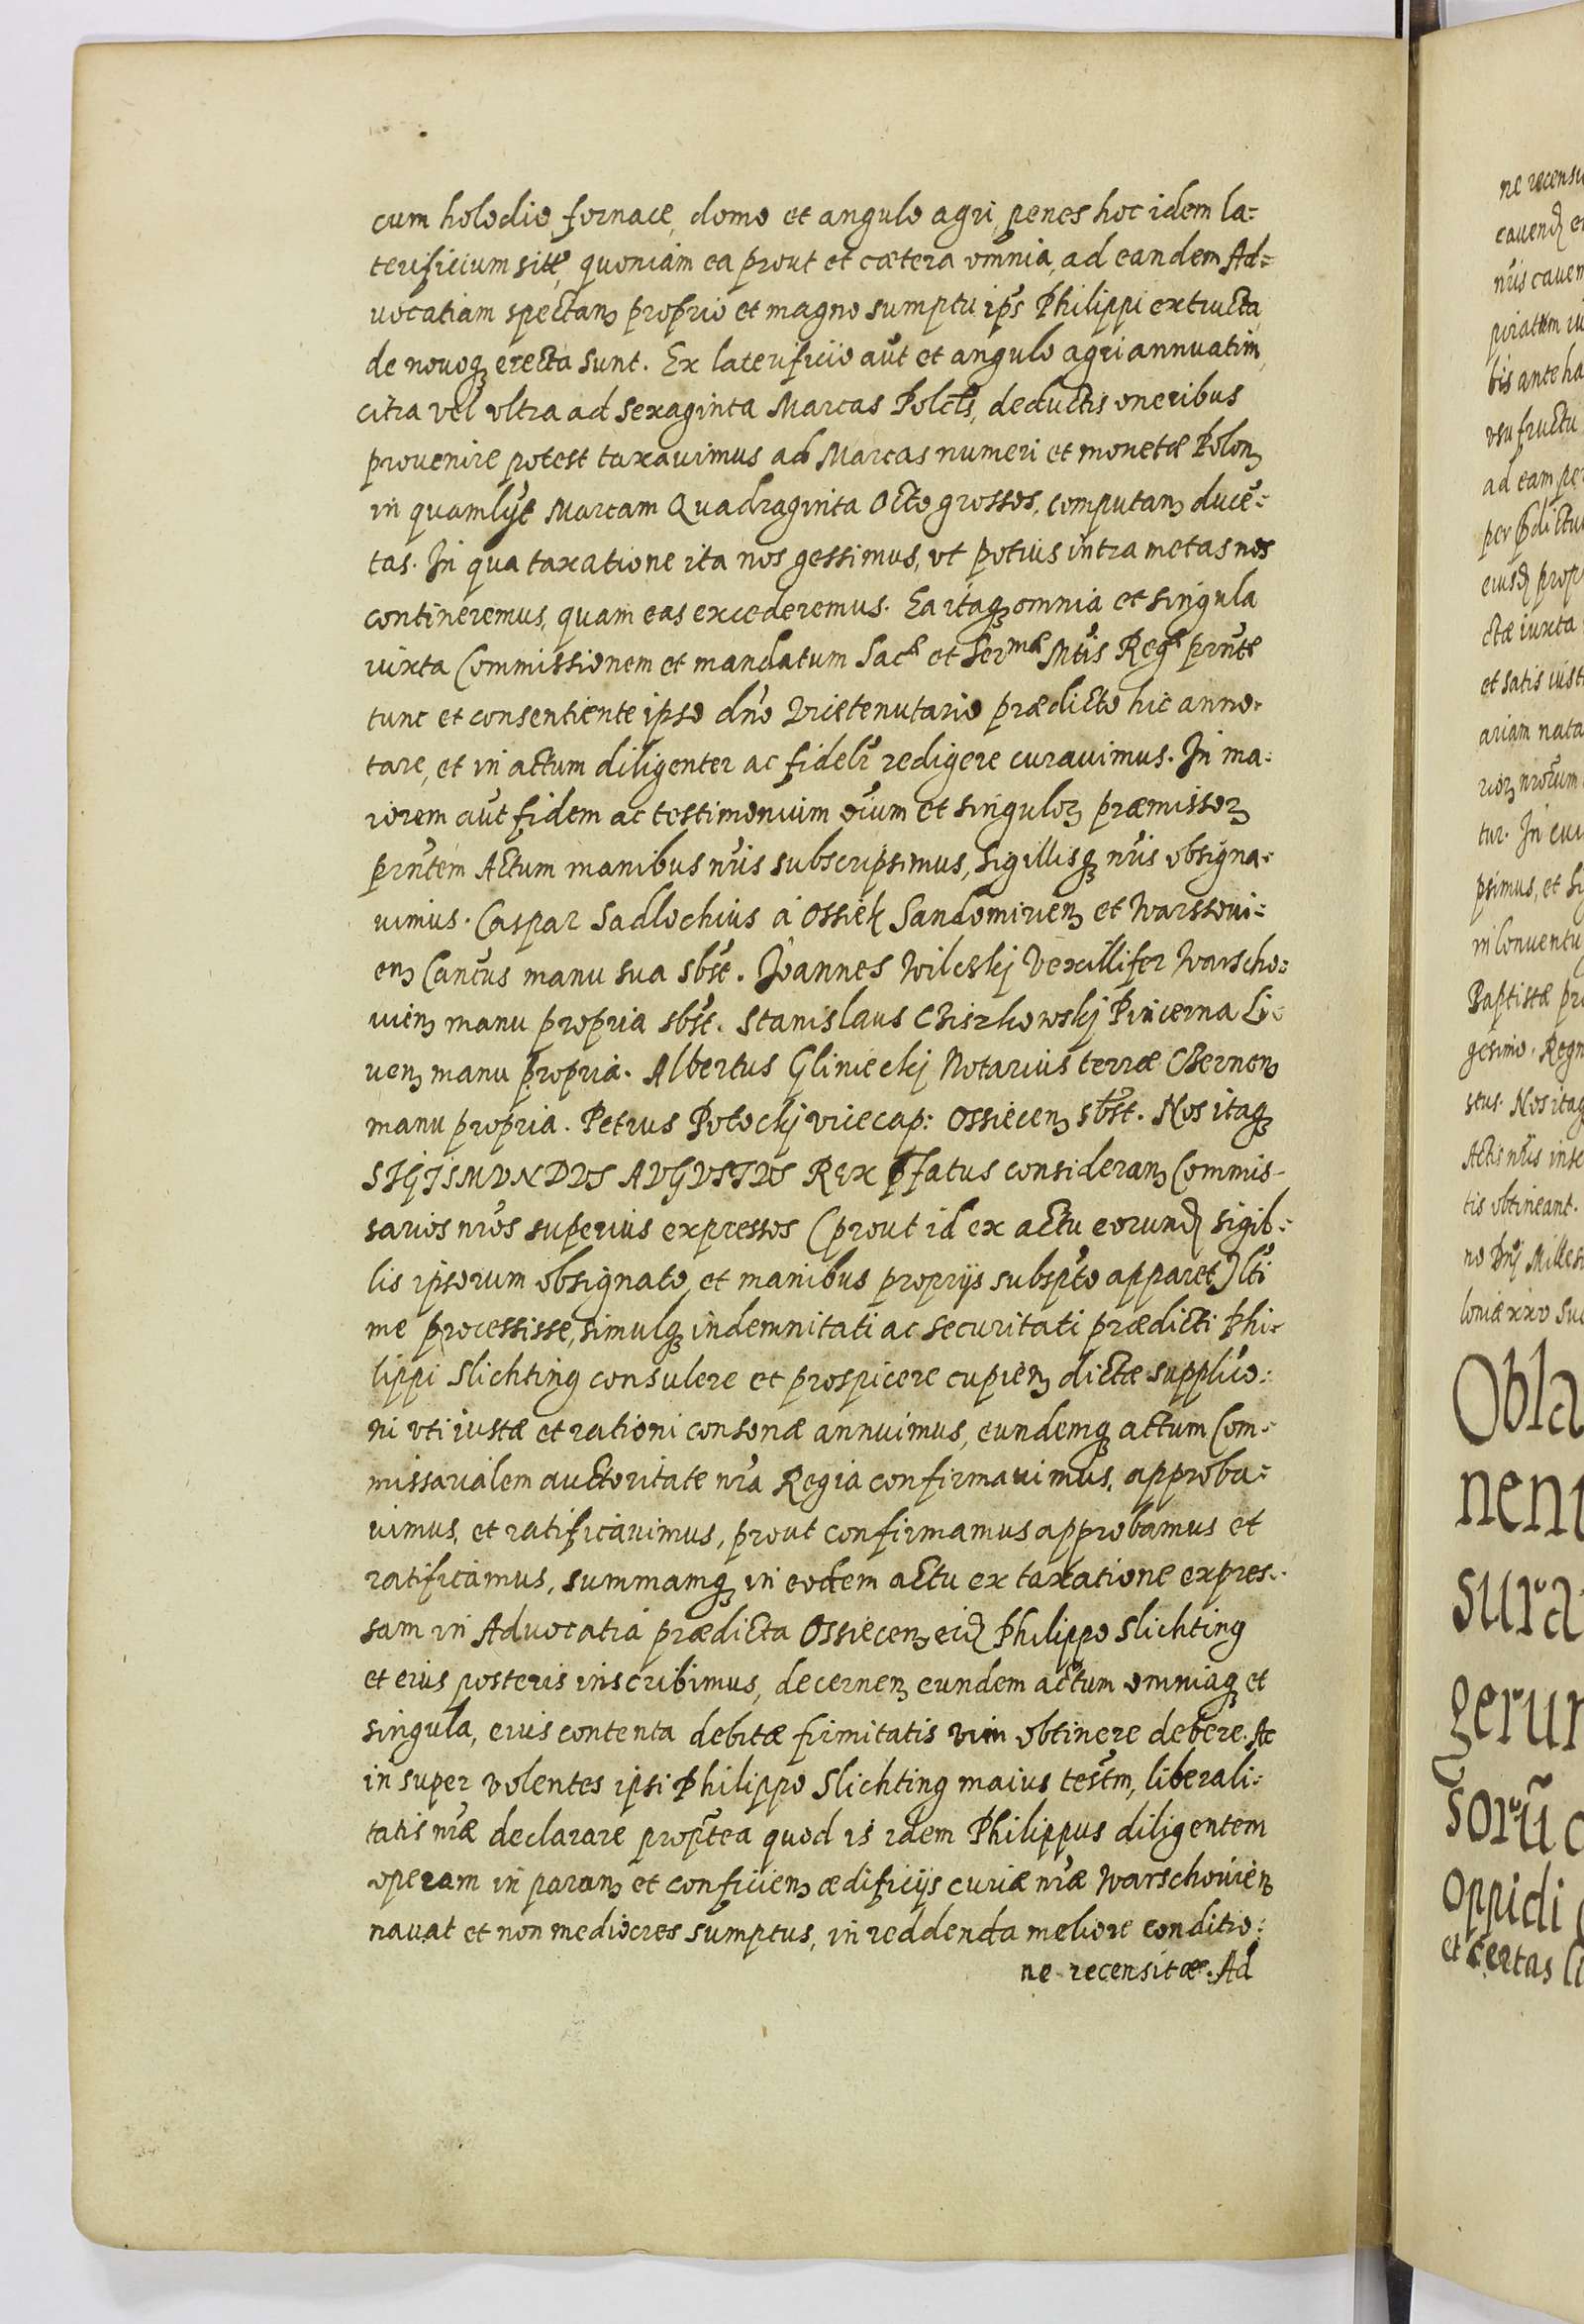 cum holodio, fornace, domo et angulo agri, penes hoc idem la-
terificium sitt̃, quoniam ea prout et cætera omnia, ad eandem Ad-
uocatiam spectanꝫ proprio et magno sumptu ip̃s Philippi extructa,
de nouoqꝫ erecta sunt. Ex laterificio aũt et angulo agri annuatim,
citra vel vltra ad sexaginta Marcas Polcłs, deductis oneribus
prouenire potest taxauimus ad Marcas numeri et monetæ Polonꝫ
in quamłyt Marcam Quadraginta Octo grossos, computanꝫ ducẽ-
tas. In qua taxatione ita nos gessimus, vt potius intra metas nos
contineremus, quam eas excederemus. Ea itaqꝫ omnia et singula
iuxta Commissionem et mandatum Sacæ et Sermæ Mt̃is Regæ prñte
tunc et consentiente ipso dño Vicetenutario prædicto hic anno-
tare, et in actum diligenter ac fidelr̃ redigere curauimus. In ma-
iorem aũt fidem ac testimonium oĩum et singuloꝝ præmissoꝝ
prñtem Actum manibus nr̃is subscripsimus, Sigillisqꝫ nr̃is obsigna-
uimus. Caspar Sadlochius à Ossiek Sandomirienꝫ et Warssoui-
enꝫ Canc̃us manu sua sbs̃t. Joannes Wilcskj Vexillifer Warscho-
uienꝫ manu propria sbs̃t. Stanislaus Chiszkowskj Pincerna Li-
uenꝫ manu propria. Albertus Gliniecki Notarius terræ Chernenꝫ
manu propria. Petrus Potockj vicecap: Ossiecenꝫ sbs̃t. Nos itaqꝫ
SIGISMVNDVS AVGVSTVS REX p̃fatus consideranꝫ Commis-
sarios nr̃os superius expressos (prout id ex actu eorunđ sigil-
lis ipsorum obsignato, et manibus proprijs subsp̃to apparet) lti
me processisse, simulqꝫ indemnitati ac securitati prædicti Phi-
lippi Slichting consulere et prospicere cupienꝫ dictæ supplico-
ni vti iustæ et rationi consonæ annuimus, eundemqꝫ actum Com-
missarialem auctoritate nr̃a Regia confirmauimus, approba-
uimus, et ratificauimus, prout confirmamus approbamus et
ratificamus, summamqꝫ in eodem actu ex taxatione expres-
sam in Aduocatia prædicta Ossiecenꝫ eiđ Philippo Slichting
et eius posteris inscribimus, decernenꝫ eundem actum omniaqꝫ et
singula, eius contenta debitæ firmitatis vim obtinere debere. Ac
insuper volentes ipsi Philippo Slichting maius test̃m, liberali-
tatis nr̃æ declarare propt̃ea quod is idem Philippus diligentem
operam in paranꝫ et conficienꝫ ædificijs curiæ nr̃æ Warschouienꝫ
nauat et non mediocres sumptus, in reddenda meliore conditio-
ne recensitæ. Ad
ne recensi
cauenđ e
nr̃is cauen
bis ante ha
vsu fructu
ad eam pe
per p̃dictu
eiusđ prop
ctæ iuxta
et satis iust
ariam nata
tur. In cui
psimus, et si
in Conuentu
Baptistæ pr
gesimo. Regn
stus. Nos itaq
Actis nr̃is inse
tis obtineant.
no Dnĩ Milles
loniæ xxv Su
Obla
neni
sura
gerun
sorũ c
oppidi
et certas li